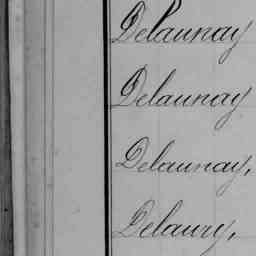 Delaunay
Delaunay
Delaunay,
Delaury,